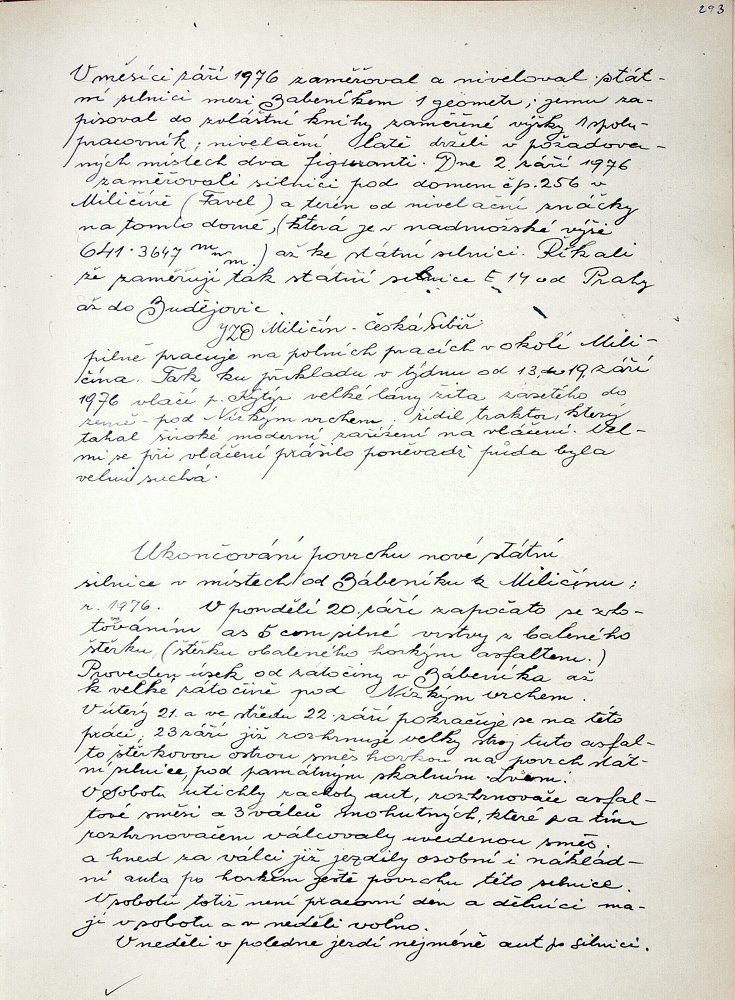 293
V měsíci září 1976 zaměřoval a niveloval stát-
ní silnici mezi Babeníkem 1 geometr, jemu za-
pisoval do zvláštní knihy zaměřené výšky 1 spolu-
pracovník; nivelační latě drželi v požadova-
ných místech dva figuranti. Dne 2. září 1976
zaměřovali silnici pod domem čp. 256 v
Miličíně (Favel) a terén od nivelační značky
na tomto domě, (která je v nadmořské výši
641.3647 m n. m.) až ke státní silnici. Říkali
že zaměřují tak státní silnice E 14 od Prahy
až do Budějovic.
JZD Miličín - Česká Sibiř
pilně pracuje na polních pracích v okolí Mili-
čína. Tak ku příkladu v týdnu od 13. do 19. září
1976 vláčí p. Kytýr velké lány žita zasetého do
země - pod Nízkým vrchem, řídil traktor, který
tahal široké moderní zařízení na vláčení. Vel-
mi se při vláčení prášilo poněvadž půda byla
velmi suchá.
Ukončování povrchu nové státní
silnice v místech od Bábeníku k Miličínu;
r. 1976. V pondělí 20. září započato se zho-
tovováním as 5 cm silné vrstvy z baleného
štěrku, (štěrku obaleného horkým asfaltem.)
Proveden úsek od zátočiny v Bábeníka až
k velké zátočině pod Nízkým vrchem.
V úterý 21. a ve středu 22. září pokračuje se na této
práci; 23 září již rozhrnuje velký stroj tuto asfal-
to štěrkovou ostrou směs horkou na povrch stát-
ní silnice, pod památným skalním
V Sobotu utichly rachoty aut, rozhrnovače asfal-
tové směsi a 3 válců mohutných, které za tím
rozhrnovačem válcovaly uvedenou směs,
a hned za válci již jezdily osobní i náklad-
ní auta po horkém ještě povrchu této silnice.
V sobotu totiž není pracovní den a dělníci ma-
jí v sobotu a v neděli volno.
V neděli v poledne jezdí nejméně aut po silnici.